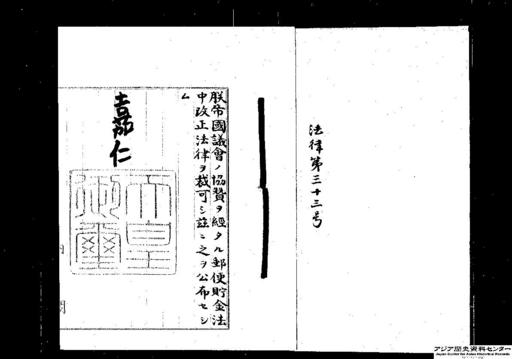 法律第三十三号
朕帝國議會ノ協贊ヲ經タル郵便貯金法
中改正法律ヲ裁可シ茲ニ之ヲ公布セシ
ム
嘉仁
天皇
御璽
内
閣
アジア歴史資料センター
Japan Center for Asian Historical Records